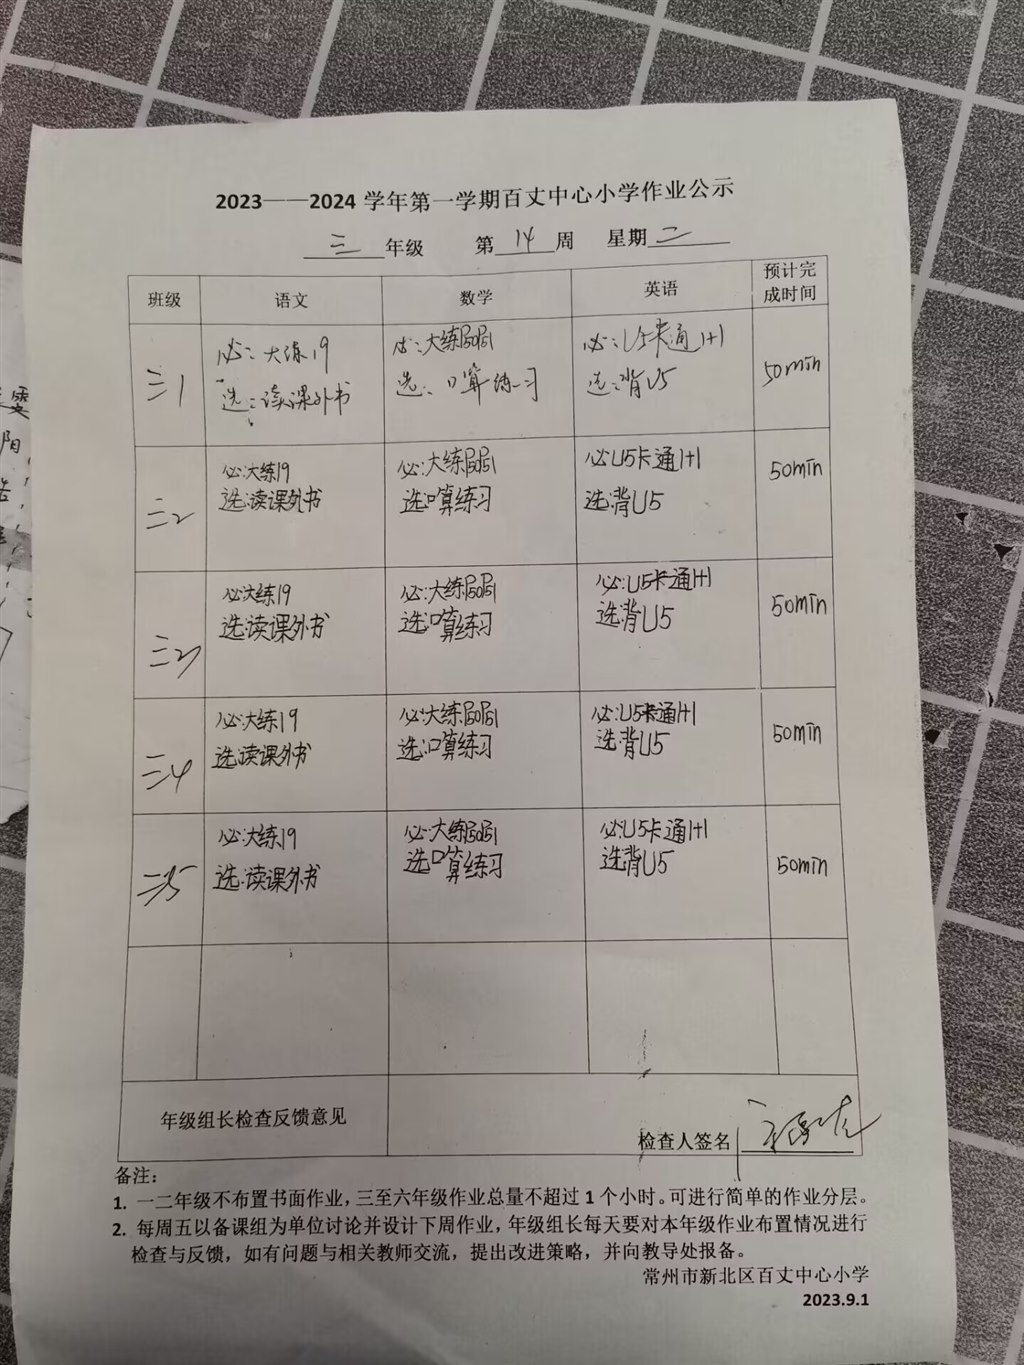 2023——2024 学年第一学期百丈中心小学作业公示
三 年级 第 14 周 星期 二
班级 语文 数学 英语 预计完成时间
三1
必：大练19
选：读课外书
必：大练
选：口算练习
必：U5卡通1+1
选：背U5
50min
三2
必:大练19
选:读课外书
必:大练
选:口算练习
必U5卡通1+1
选:背U5
50min
三3
必:大练19
选:读课外书
必:大练
选:口算练习
必:U5卡通1+1
选:背U5
50min
三4
必:大练19
选:读课外书
必:大练
选:口算练习
必:U5卡通1+1
选:背U5
50min
三5
必:大练19
选:读课外书
必:大练
选:口算练习
必:U5卡通1+1
选:背U5
50min
年级组长检查反馈意见
检查人签名
备注：
1. 一二年级不布置书面作业，三至六年级作业总量不超过 1 个小时。可进行简单的作业分层。
2. 每周五以备课组为单位讨论并设计下周作业，年级组长每天要对本年级作业布置情况进行
检查与反馈，如有问题与相关教师交流，提出改进策略，并向教导处报备。
常州市新北区百丈中心小学
2023.9.1